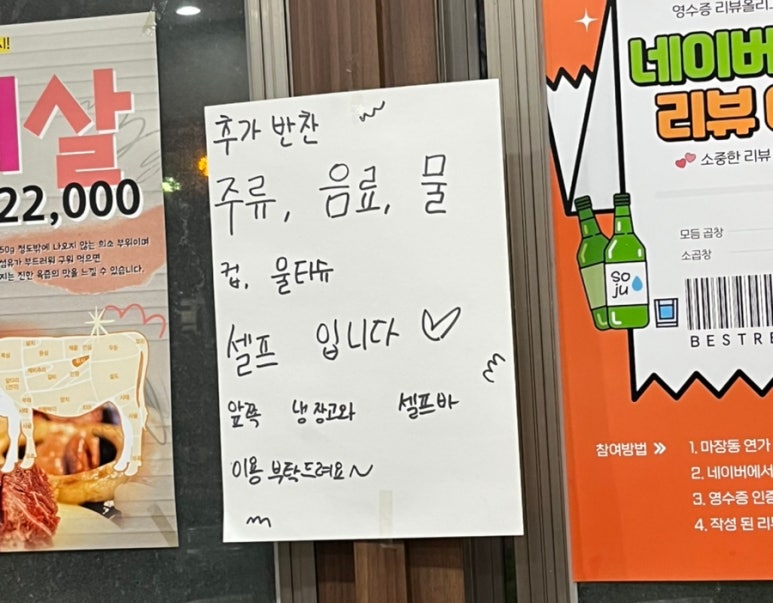 시!
살
22,000
50g 정도밖에 나오지 않는 희소 부위이며
섬유가 부드러워 구워 먹으면
지는 진한 육즙의 맛을 느낄 수 있습니다.
추가 반찬
주류, 음료, 물
컵, 물티슈
셀프 입니다 ♡
앞쪽 냉장고와 셀프바
이용 부탁드려요~
영수증 리뷰올리고
네이버
리뷰
소중한 리뷰
모듬 곱창
소곱창
so
ju
BESTRE
참여방법 »
1. 마장동 연가
2. 네이버에서
3. 영수증 인증
4. 작성 된 리뷰